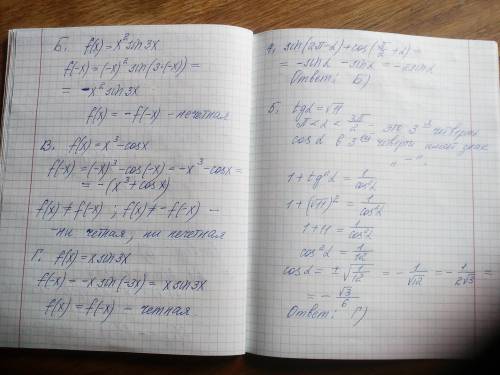 Б. f(x) = x² sin 3x
f(-x) = (-x)² sin(3·(-x)) =
= -x² sin 3x
f(x) = -f(-x) - нечетная
В. f(x) = x³ - cosx
f(-x) = (-x)³ - cos(-x) = -x³ - cosx =
= -(x³ + cosx)
f(x) ≠ f(-x) ; f(x) ≠ -f(-x) -
- ни четная, ни нечетная
Г. f(x) = x sin 3x
f(-x) = -x sin(-3x) = x sin 3x
f(x) = f(-x) - четная.
4. sin(2π-α) + cos(π/2 + α) =
= -sinα - sinα = -2sinα
Ответ: Б)
5. tgα = √11
π < α < 3π/2 - это 3 ª четверть
cosα в 3 ей четверти имеет знак
" - ".
1 + tg²α = 1/cos²α
1 + (√11)² = 1/cos²α
1 + 11 = 1/cos²α
cos²α = 1/12
cosα = ± √(1/12) = - 1/√12 = - 1/2√3 =
= - √3/6
Ответ: Г)